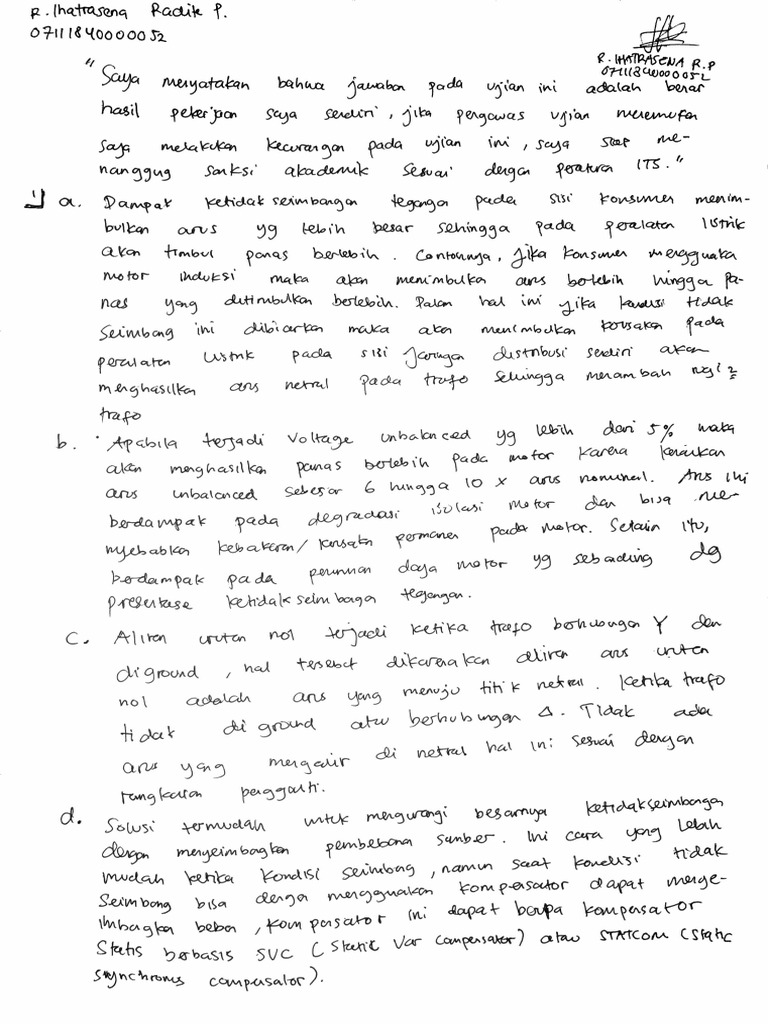 R. Ihatrasena Radite P.
07111840000052
R. IHATRASENA R.P
07111840000052
"Saya menyatakan bahwa jawaban pada ujian ini adalah benar
hasil pekerjaan saya sendiri, jika pengawas ujian menemukan
saya melakukan kecurangan pada ujian ini, saya siap me-
nanggung sanksi akademik sesuai dengan peraturan ITS."
1) a. Dampak ketidakseimbangan tegangan pada sisi konsumen menim-
bulkan arus yg lebih besar sehingga pada peralatan listrik
akan timbul panas berlebih. Contohnya, jika konsumen menggunaka
motor induksi maka akan menimbulkan arus berlebih hingga pa-
nas yang ditimbulkan berlebih. Dalam hal ini jika kondisi tidak
seimbang ini dibiarkan maka akan menimbulkan kerusakan pada
peralatan listrik pada sisi jaringan distribusi sendiri akan
menghasilkan arus netral pada trafo sehingga menambah rugi2
trafo
b. Apabila terjadi voltage unbalanced yg lebih dari 5% maka
akan menghasilkan panas berlebih pada motor karena kenaikan
arus unbalanced sebesar 6 hingga 10 x arus nominal. Arus ini
berdampak pada degradasi isolasi motor dan bisa me-
nyebabkan kebakaran/kerusakan permanen pada motor. Selain itu,
berdampak pada penurunan daya motor yg sebanding dg
presentase ketidakseimbangan tegangan.
c. Aliran urutan nol terjadi ketika trafo berhubungan Y dan
diground, hal tersebut dikarenakan aliran arus urutan
nol adalah arus yang menuju titik netral. Ketika trafo
tidak di ground atau berhubungan Δ. Tidak ada
arus yang mengalir di netral hal ini sesuai dengan
rangkaian pengganti.
d. Solusi termudah untuk mengurangi besarnya ketidakseimbangan
dengan menyeimbangkan pembebanan sumber. Ini cara yang lebih
mudah ketika kondisi seimbang, namun saat kondisi tidak
seimbang bisa dengan menggunakan kompensator dapat menye-
imbangkan beban, kompensator ini dapat berupa kompensator
statis berbasis SVC (Static Var Compensator) atau STATCOM (Static
Synchronus compensator).